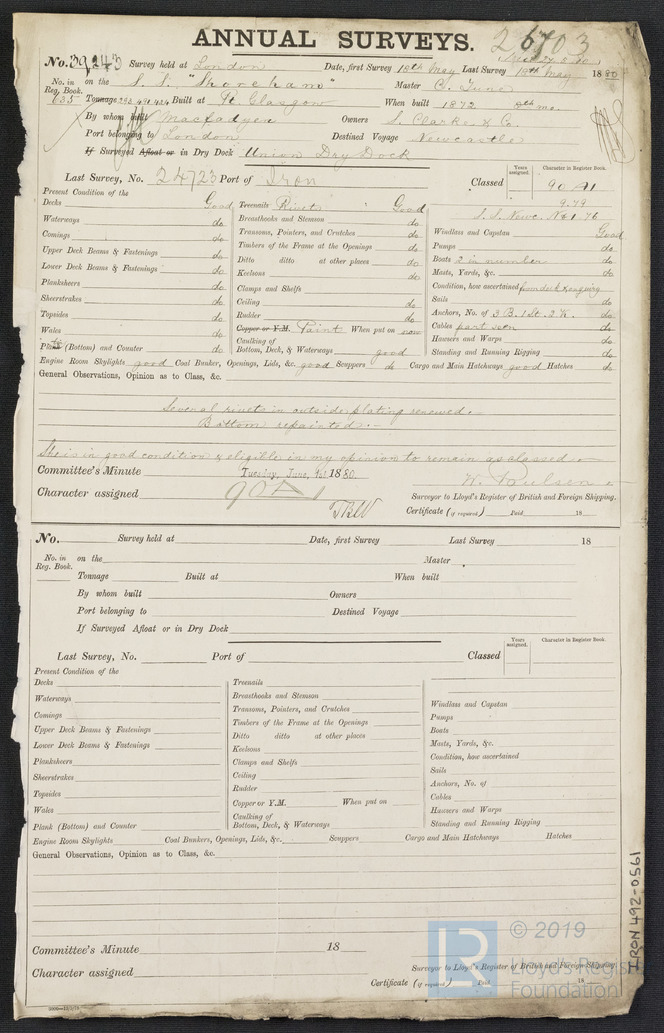 ANNUAL SURVEYS. 26703
No. 39243 Survey held at London Date, first Survey 18th May Last Survey 18th May 1880
No. in Reg. Book. on the S. S. "Shoreham" Master
635 Tonnage Built at Pt. Glasgow When built 1872
By whom built Macfadyen Owners S. Clarke & Co.
Port belonging to London Destined Voyage Newcastle
If Surveyed Afloat or in Dry Dock Union Dry Dock
Last Survey, No. 24723 Port of Iron Classed Years assigned. Character in Register Book.
90 A1
9.79
S.S. Newc. No.1 76
Present Condition of the
Decks Good
Waterways do
Comings do
Upper Deck Beams & Fastenings do
Lower Deck Beams & Fastenings do
Planksheers do
Sheerstrakes do
Topsides do
Wales do
(Bottom) and Counter do
Treenails Rivets Good
Breasthooks and Stemson do
Transoms, Pointers, and Crutches do
Timbers of the Frame at the Openings do
Ditto ditto at other places do
Keelsons do
Clamps and Shelfs do
Ceiling do
Rudder do
Copper or Y.M. Paint When put on now
Caulking of Bottom, Deck, & Waterways good
Windlass and Capstan Good
Pumps do
Boats 2 in number do
Masts, Yards, &c. do
Condition, how ascertained from deck & enquiry
Sails do
Anchors, No. of 3 B. 1 St. 2 K. do
Cables part seen do
Hawsers and Warps do
Standing and Running Rigging do
Engine Room Skylights good Coal Bunker, Openings, Lids, &c. good Scuppers do Cargo and Main Hatchways good Hatches do
General Observations, Opinion as to Class, &c.
Several rivets in outside plating renewed.
Bottom repainted.
She is in good condition & eligible in my opinion to remain as classed.
Committee's Minute Tuesday, June, 1st 1880.
W. Paulsen
Character assigned 90 A1
Surveyor to Lloyd's Register of British and Foreign Shipping.
Certificate (if required) Paid 18
No. Survey held at Date, first Survey Last Survey 18
No. in Reg. Book. on the Master
Tonnage Built at When built
By whom built Owners
Port belonging to Destined Voyage
If Surveyed Afloat or in Dry Dock
Last Survey, No. Port of Classed Years assigned. Character in Register Book.
Present Condition of the
Decks
Waterways
Comings
Upper Deck Beams & Fastenings
Lower Deck Beams & Fastenings
Planksheers
Sheerstrakes
Topsides
Wales
Plank (Bottom) and Counter
Treenails
Breasthooks and Stemson
Transoms, Pointers, and Crutches
Timbers of the Frame at the Openings
Ditto ditto at other places
Keelsons
Clamps and Shelfs
Ceiling
Rudder
Copper or Y.M. When put on
Caulking of Bottom, Deck, & Waterways
Windlass and Capstan
Pumps
Boats
Masts, Yards, &c.
Condition, how ascertained
Sails
Anchors, No. of
Cables
Hawsers and Warps
Standing and Running Rigging
Engine Room Skylights Coal Bunkers, Openings, Lids, &c. Scuppers Cargo and Main Hatchways Hatches
General Observations, Opinion as to Class, &c.
Committee's Minute 18
Character assigned
Surveyor to Lloyd's Register of British and Foreign Shipping.
Certificate (if required) Paid 18
IRON 492-0561
© 2019
Lloyd's Register
Foundation